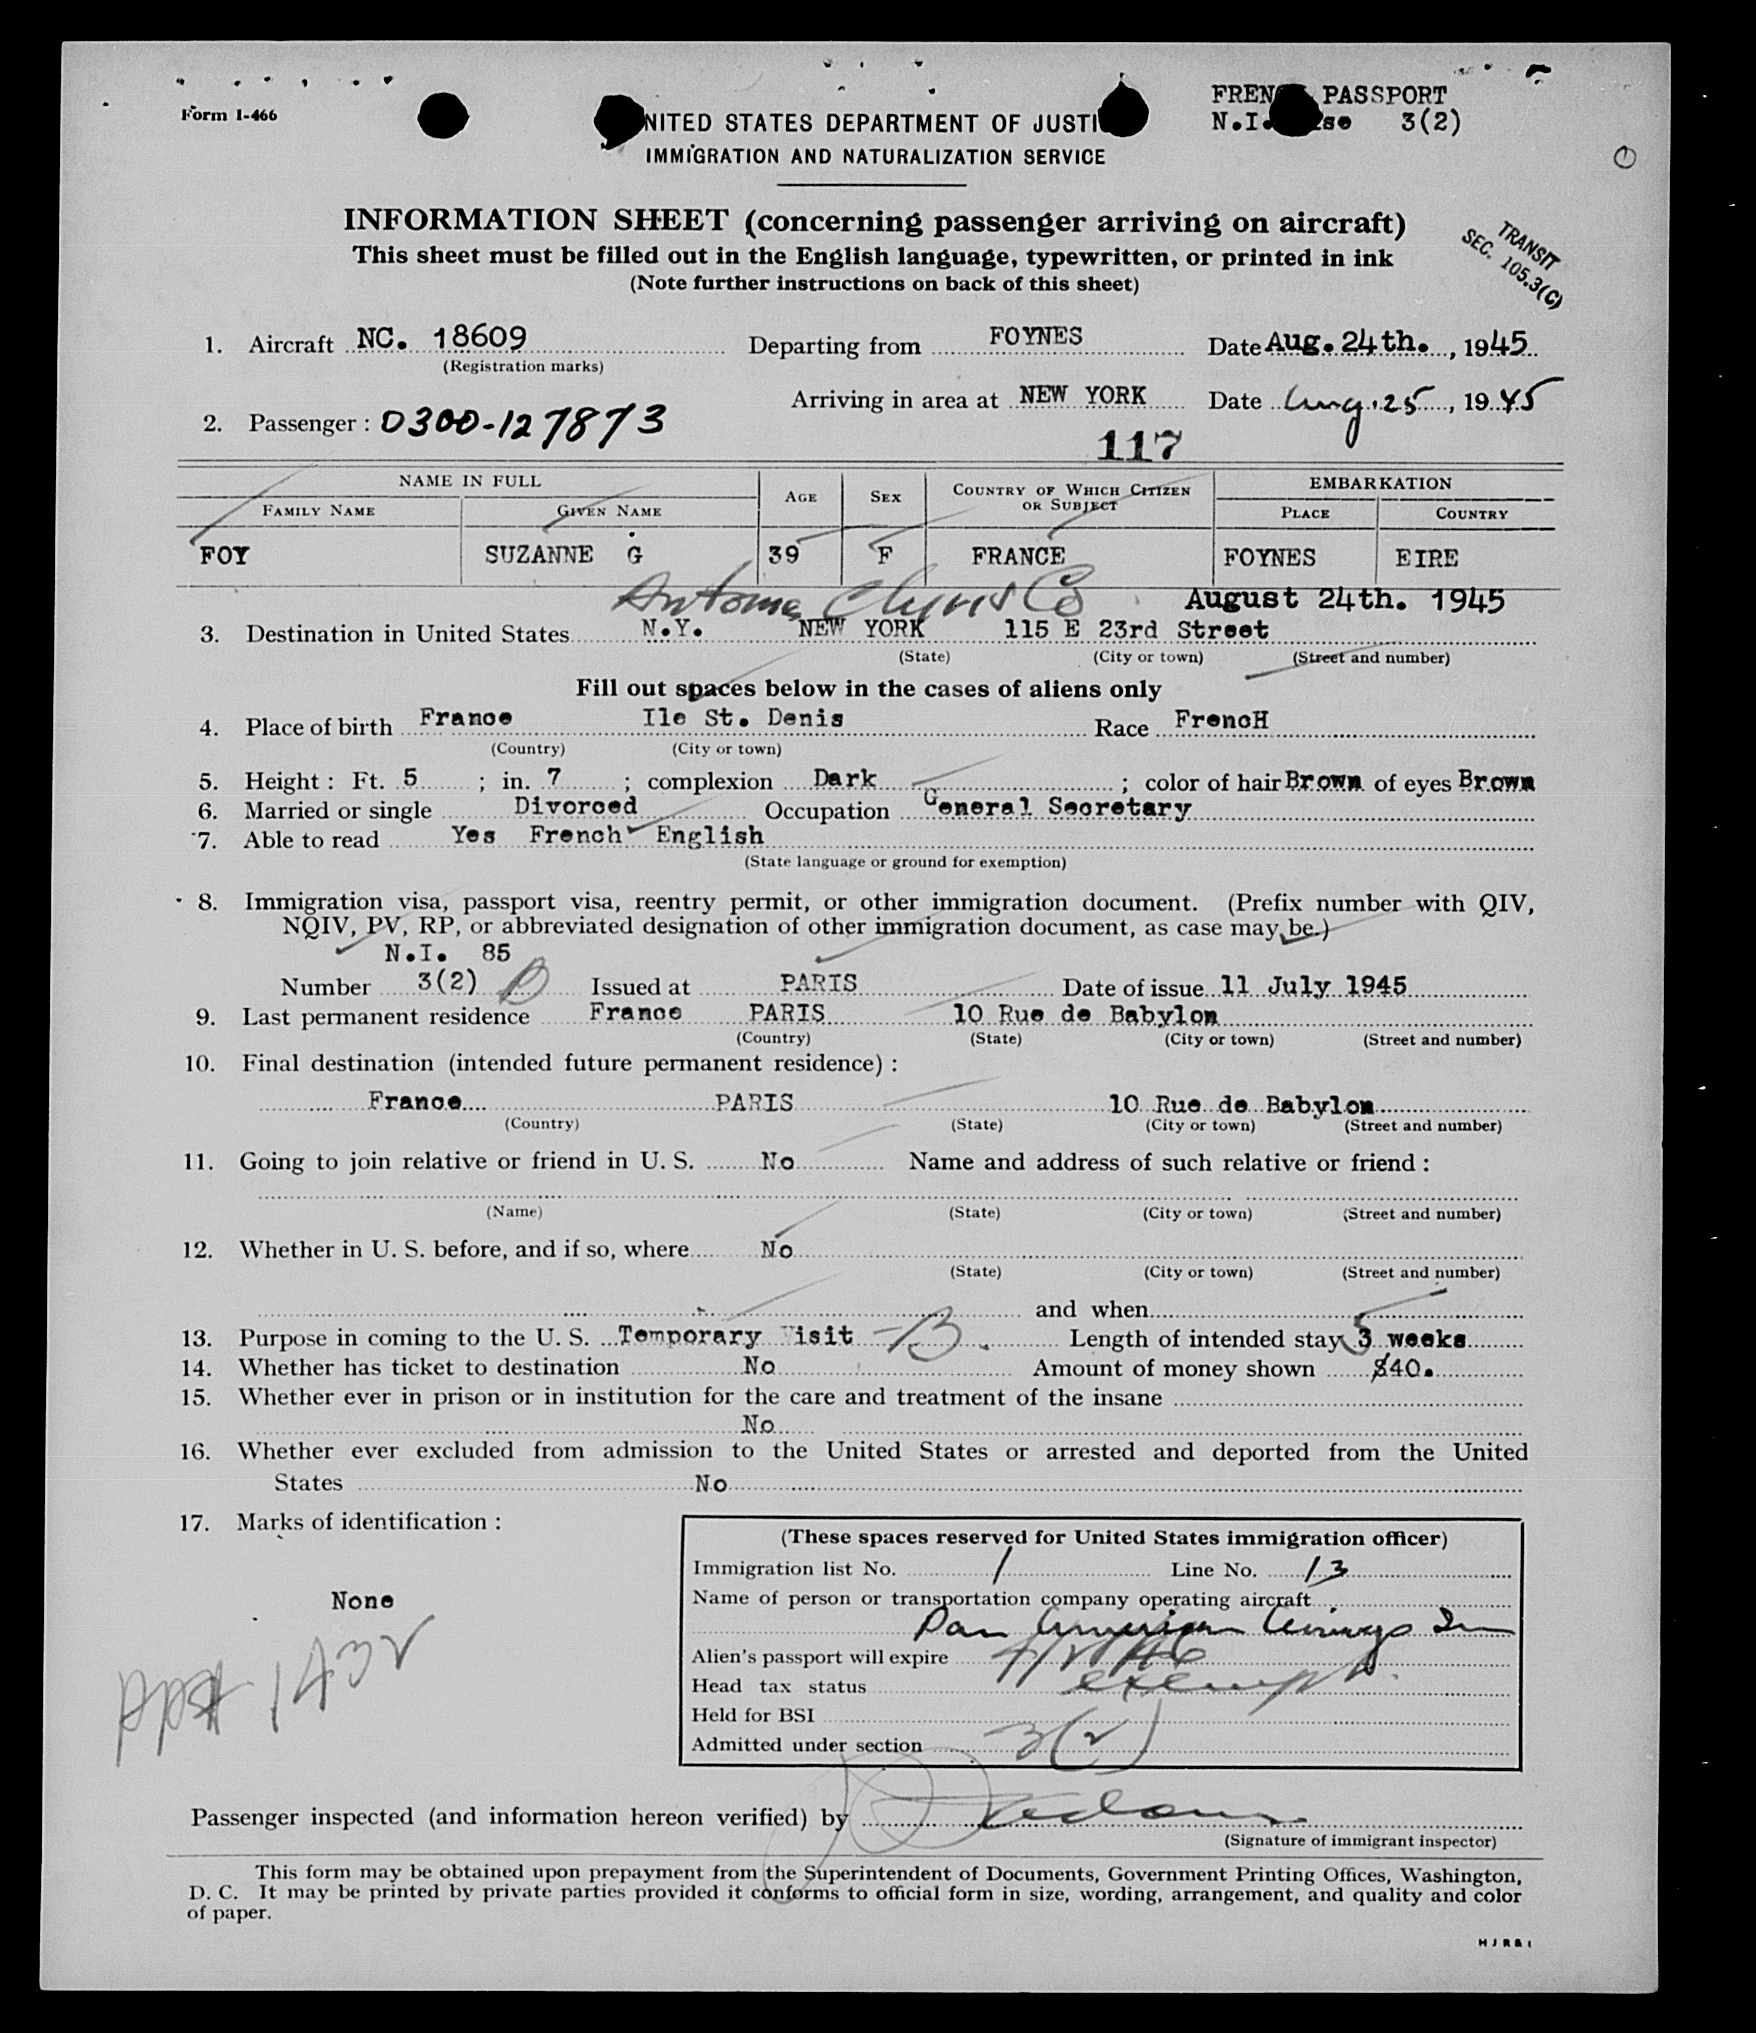 Form I-466
FREN PASSPORT
N.I. 3(2)
NITED STATES DEPARTMENT OF JUSTI
IMMIGRATION AND NATURALIZATION SERVICE
INFORMATION SHEET (concerning passenger arriving on aircraft)
This sheet must be filled out in the English language, typewritten, or printed in ink
(Note further instructions on back of this sheet)
TRANSIT
SEC. 105.3(C)
1. Aircraft NC. 18609 Departing from FOYNES Date Aug. 24th. , 1945
(Registration marks)
Arriving in area at NEW YORK Date Aug. 25, 1945
2. Passenger : 0300-127873
117
NAME IN FULL AGE SEX COUNTRY OF WHICH CITIZEN OR SUBJECT EMBARKATION
FAMILY NAME GIVEN NAME PLACE COUNTRY
FOY SUZANNE G 39 F FRANCE FOYNES EIRE
August 24th. 1945
3. Destination in United States N.Y. NEW YORK 115 E 23rd Street
(State) (City or town) (Street and number)
Fill out spaces below in the cases of aliens only
4. Place of birth France Ile St. Denis Race FrencH
(Country) (City or town)
5. Height : Ft. 5 ; in. 7 ; complexion Dark ; color of hair Brown of eyes Brown
6. Married or single Divorced Occupation General Secretary
7. Able to read Yes French English
(State language or ground for exemption)
8. Immigration visa, passport visa, reentry permit, or other immigration document. (Prefix number with QIV,
NQIV, PV, RP, or abbreviated designation of other immigration document, as case may be.)
N.I. 85
Number 3(2) Issued at PARIS Date of issue 11 July 1945
9. Last permanent residence France PARIS 10 Rue de Babylon
(Country) (State) (City or town) (Street and number)
10. Final destination (intended future permanent residence) :
France PARIS 10 Rue de Babylon
(Country) (State) (City or town) (Street and number)
11. Going to join relative or friend in U. S. No Name and address of such relative or friend :
(Name) (State) (City or town) (Street and number)
12. Whether in U. S. before, and if so, where No
(State) (City or town) (Street and number)
and when
13. Purpose in coming to the U. S. Temporary Visit -B. Length of intended stay 3 weeks
14. Whether has ticket to destination No Amount of money shown $40.
15. Whether ever in prison or in institution for the care and treatment of the insane
No
16. Whether ever excluded from admission to the United States or arrested and deported from the United
States No
17. Marks of identification :
None
(These spaces reserved for United States immigration officer)
Immigration list No. 1 Line No. 13
Name of person or transportation company operating aircraft
Pan American Airways In
Alien's passport will expire
Head tax status exempt
Held for BSI
Admitted under section 3(2)
Passenger inspected (and information hereon verified) by
(Signature of immigrant inspector)
This form may be obtained upon prepayment from the Superintendent of Documents, Government Printing Offices, Washington,
D. C. It may be printed by private parties provided it conforms to official form in size, wording, arrangement, and quality and color
of paper.